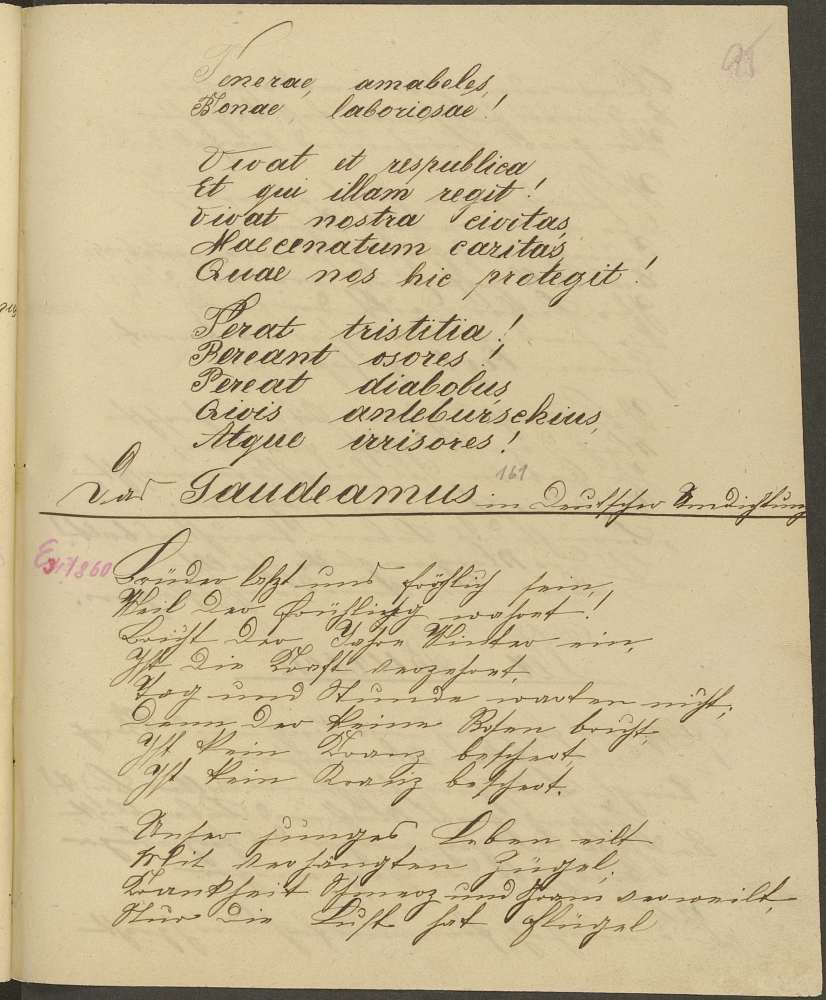 Tenerae, amabeles,
Bonae, laboriosae!
Vivat et respublica
Et qui illam regit!
Vivat nostra civitas,
Maecenatum caritas,
Quae nos hic protegit!
Perat tristitia!
Pereant osores!
Pereat diabolus
Qivis antebürschius,
Atque irrisores!
161
Das Gaudeamus in Deutscher Umdichtung
Brüder laßt uns fröhlich sein,
Weil der Frühling währet!
Bricht der Jahre Winter ein,
Ist die Kraft verzehret.
Tag und Stunde warten nicht;
Denn der keine Rosen bricht,
Ist kein Kranz beschert,
Ist kein Kranz beschert.
Unser junges Leben eilt
Mit verhängten Zügel;
Krankheit Schmerz und Gram verweilt,
Nur die Lust hat Flügel